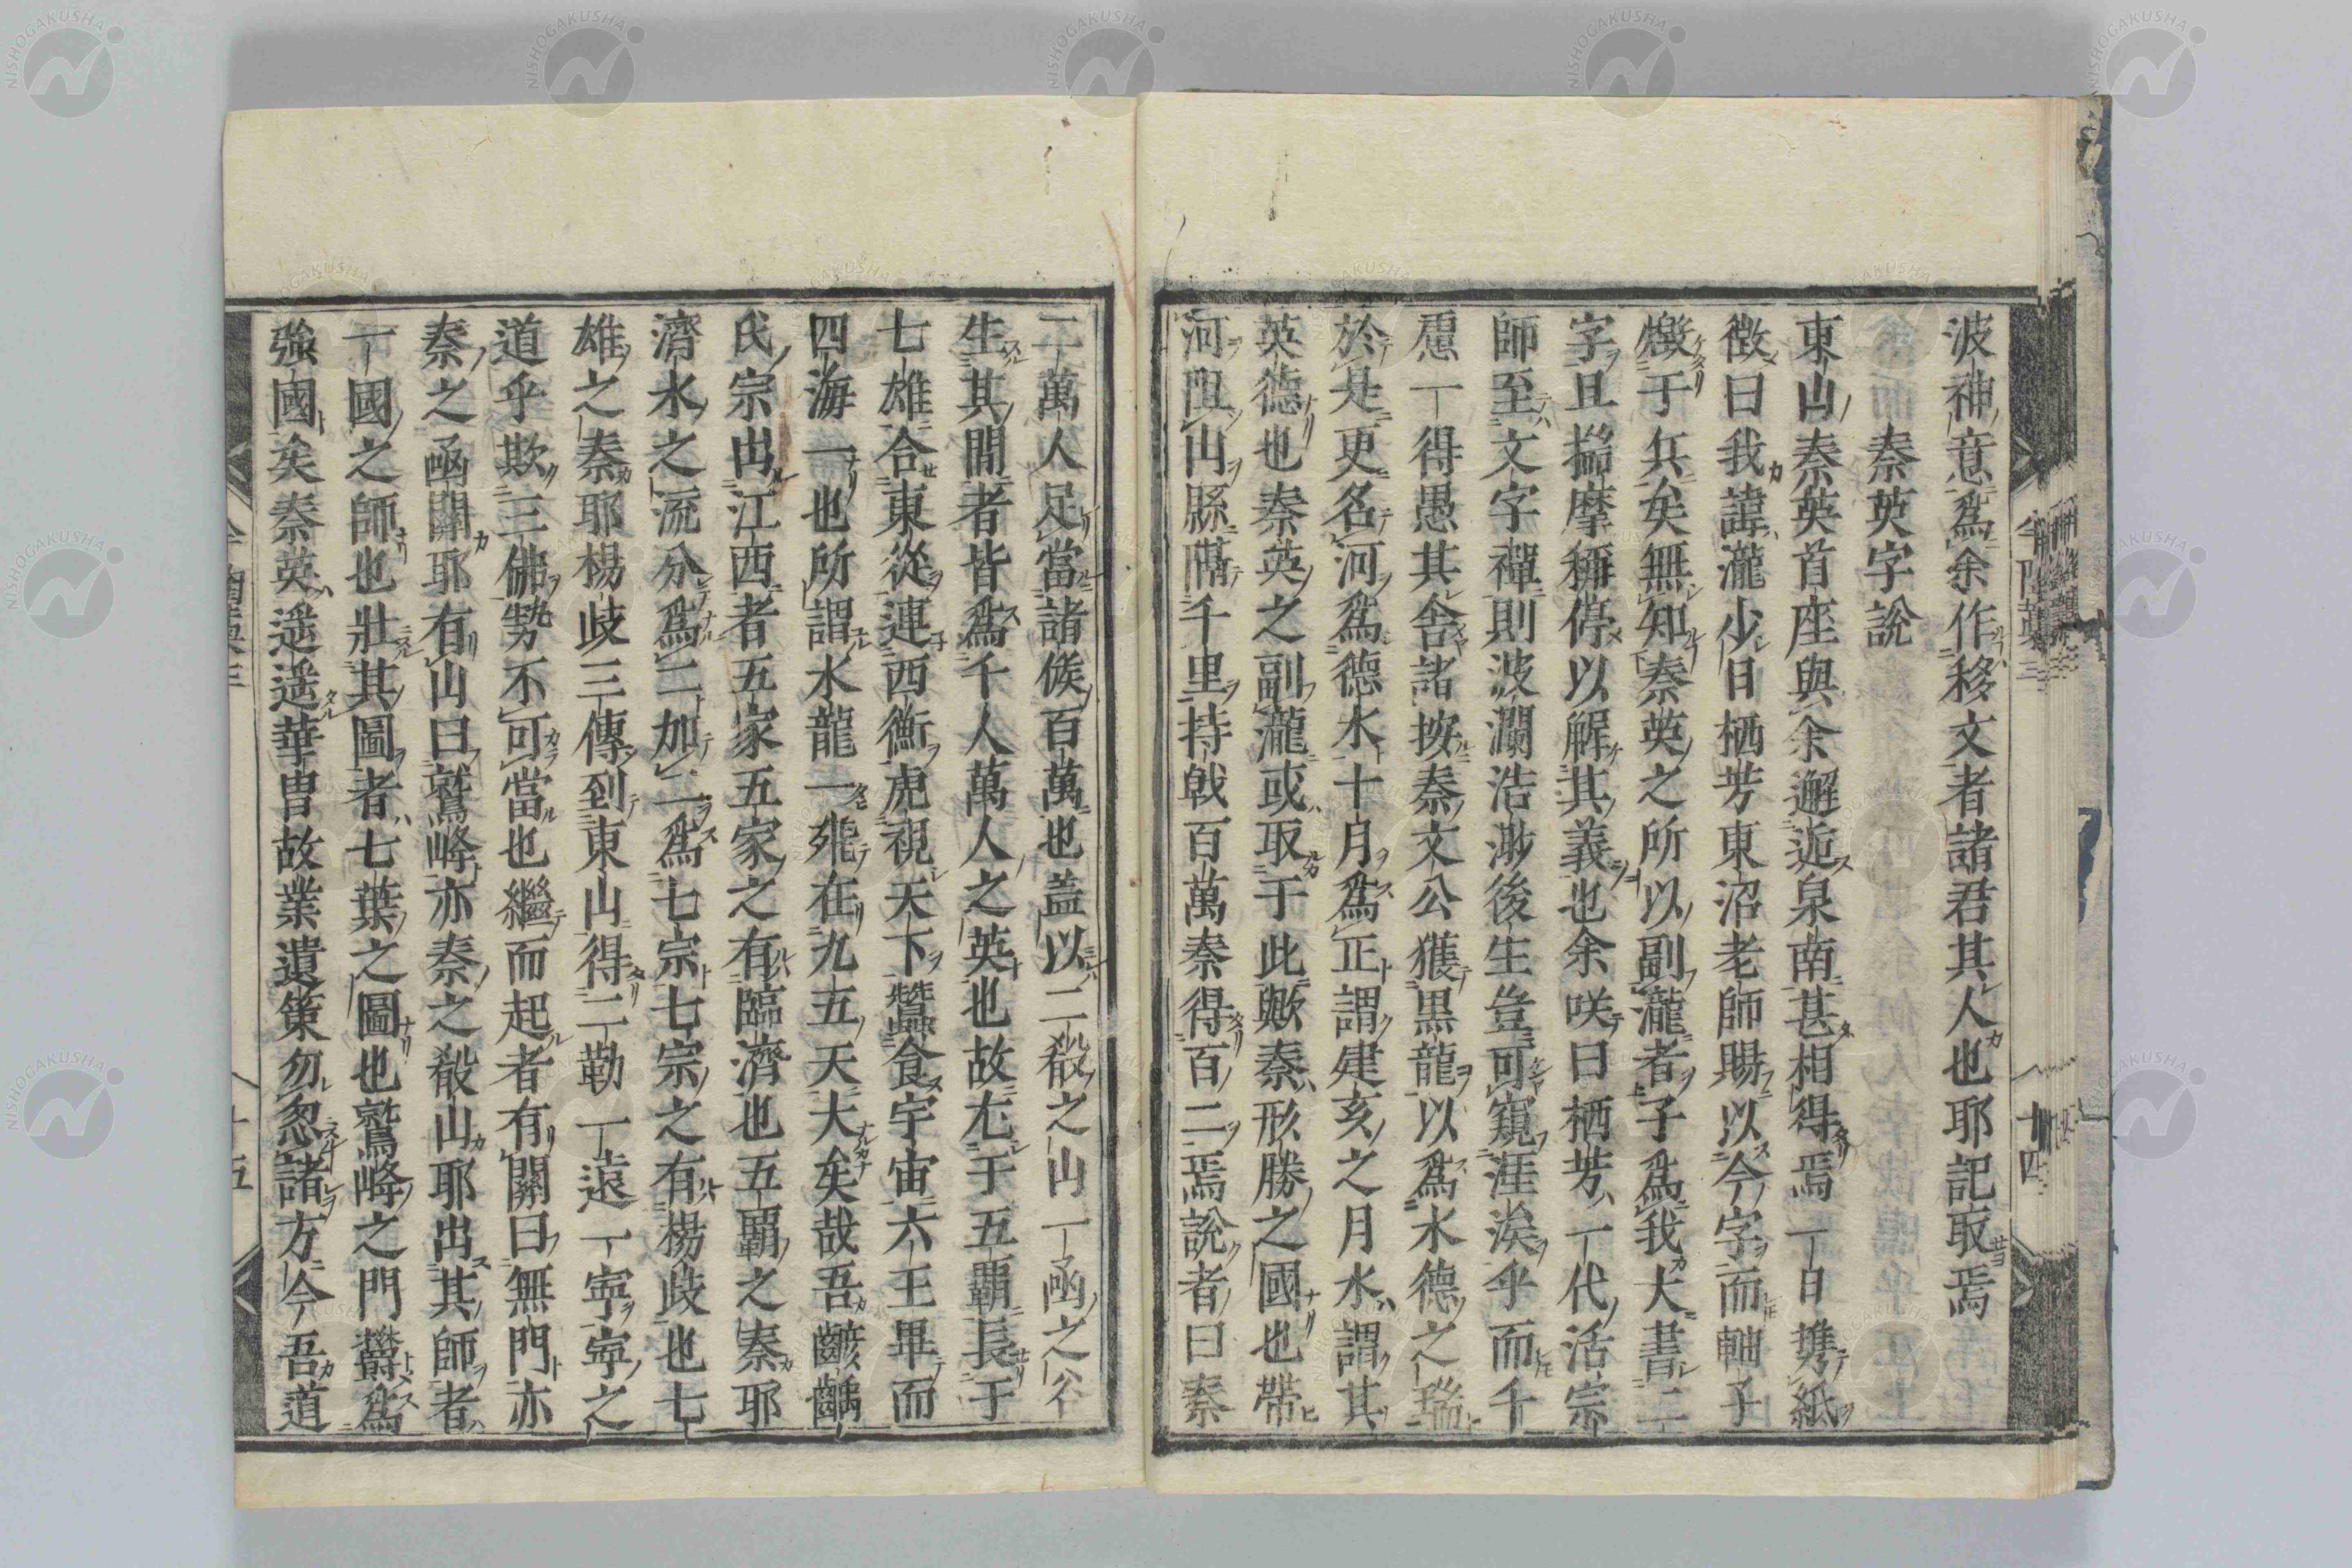 波神意爲余作移文者諸君其人也耶記取焉
秦英字說
東山秦英首座與余邂逅泉南甚相得焉一日携紙
徴曰我諱瀧少日栖芳東沼老師賜以今字而軸子
燬于兵矣無知秦英之所以副瀧者子爲我大書二
字且揣摩稱停以解其義也余咲曰栖芳一代活宗
師至文字禪則波瀾浩渺後生豈可窺涯涘乎而千
慮一得愚其舍諸按秦文公獲黒龍以爲水德之瑞
於是更名河爲德水十月爲正謂建亥之月水謂其
英德也秦英之副瀧或取于此歟秦形勝之國也帶
河阻山縣隔千里持戟百萬秦得百二焉說者曰秦
二萬人足當諸侯百萬也盖以二殽之山一函之谷
生其間者皆爲千人萬人之英也故尤于五覇長于
七雄合東從連西衡虎視天下蠶食宇宙六王畢而
四海一也所謂水龍一飛在九五天大矣哉吾齮齕
氏宗出江西者五家五家之有臨濟也五覇之秦耶
濟水之流分爲二加二爲七宗七宗之有楊歧也七
雄之秦耶楊歧三傳到東山得二勤一遠一寧寧之
道乎欺三佛勢不可當也繼而起者有關曰無門亦
秦之函關耶有山曰鷲峰亦秦之殽山耶出其師者
一國之師也壯其圖者七葉之圖也鷲峰之門欝爲
強國矣秦英遥遥華冑故業遺策勿忽諸方今吾道
十四
十五